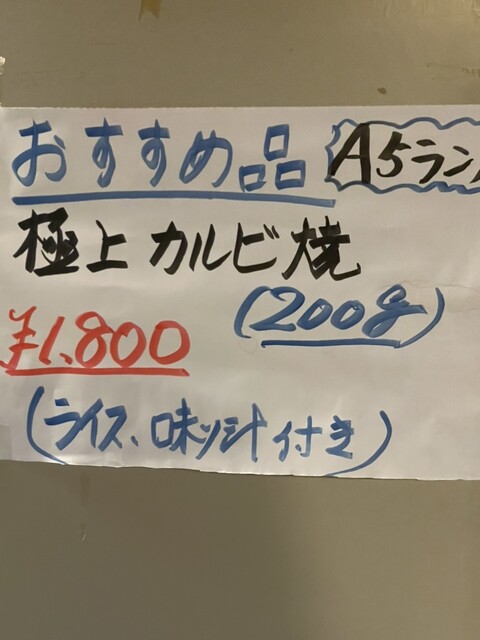 おすすめ品 A5ラン
極上カルビ焼
(200g)
¥1,800
(ライス、味ソ汁付き)